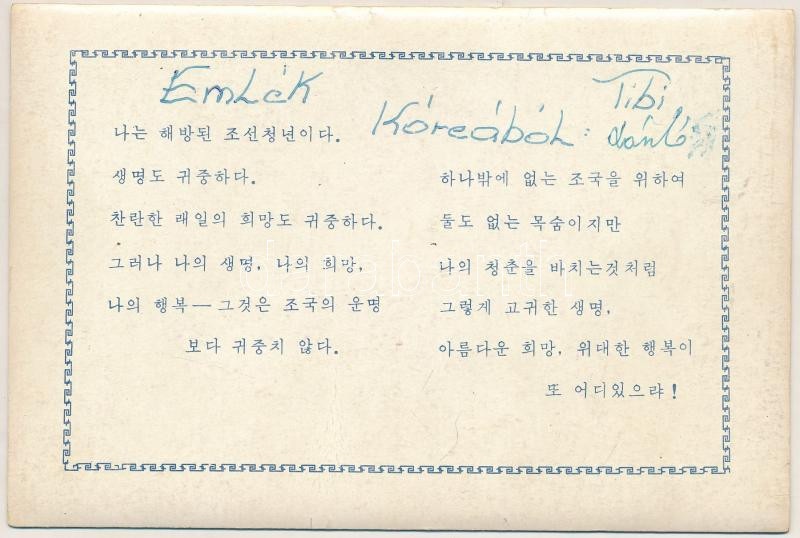 Emlék
Kóreából:
Tibi
나는 해방된 조선청년이다.
생명도 귀중하다.
찬란한 래일의 희망도 귀중하다.
그러나 나의 생명, 나의 희망,
나의 행복 — 그것은 조국의 운명
보다 귀중치 않다.
하나밖에 없는 조국을 위하여
둘도 없는 목숨이지만
나의 청춘을 바치는것처럼
그렇게 고귀한 생명,
아름다운 희망, 위대한 행복이
또 어디있으랴!